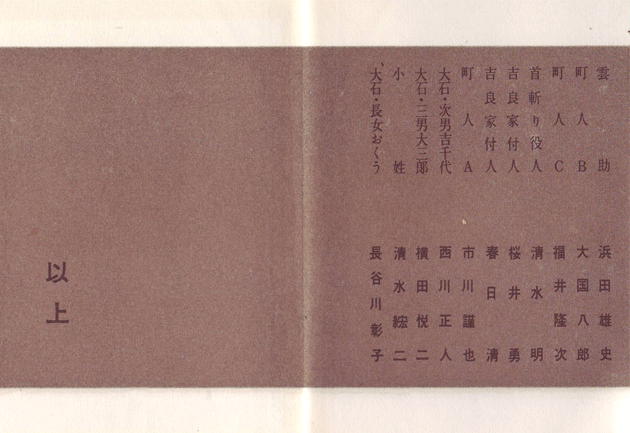 雲助 浜田雄史
町人B 大国八郎
町人C 福井隆次
首斬り役人 清水明
吉良家付人 桜井勇
吉良家付人 春日清
町人A 市川謹也
大石・次男吉千代 西川正人
大石・三男大三郎 横田悦二
小姓 清水紘二
大石・長女おくう 長谷川彰子
以上